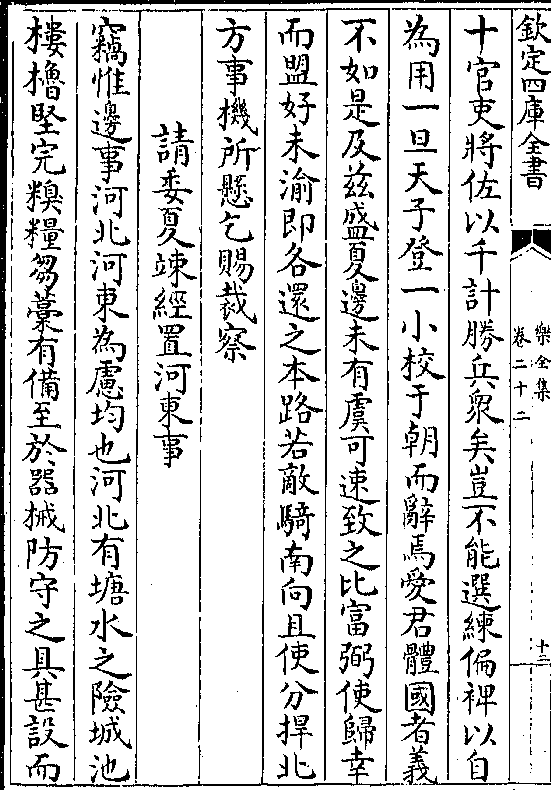 欽定四庫全書
樂全集
卷二十二
十三
十官吏將佐以千計勝兵衆矣豈不能選練偏裨以自
為用一旦天子登一小校于朝而辭焉愛君體國者義
不如是及兹盛夏邊未有虞可速致之比富弼使歸幸
而盟好未渝即各還之本路若敵騎南向且使分捍北
方事機所懸乞賜裁察
請委夏竦經置河東事
竊惟邊事河北河東為慮均也河北有塘水之險城池
樓櫓堅完糗糧芻藁有備至於器械防守之具甚設而